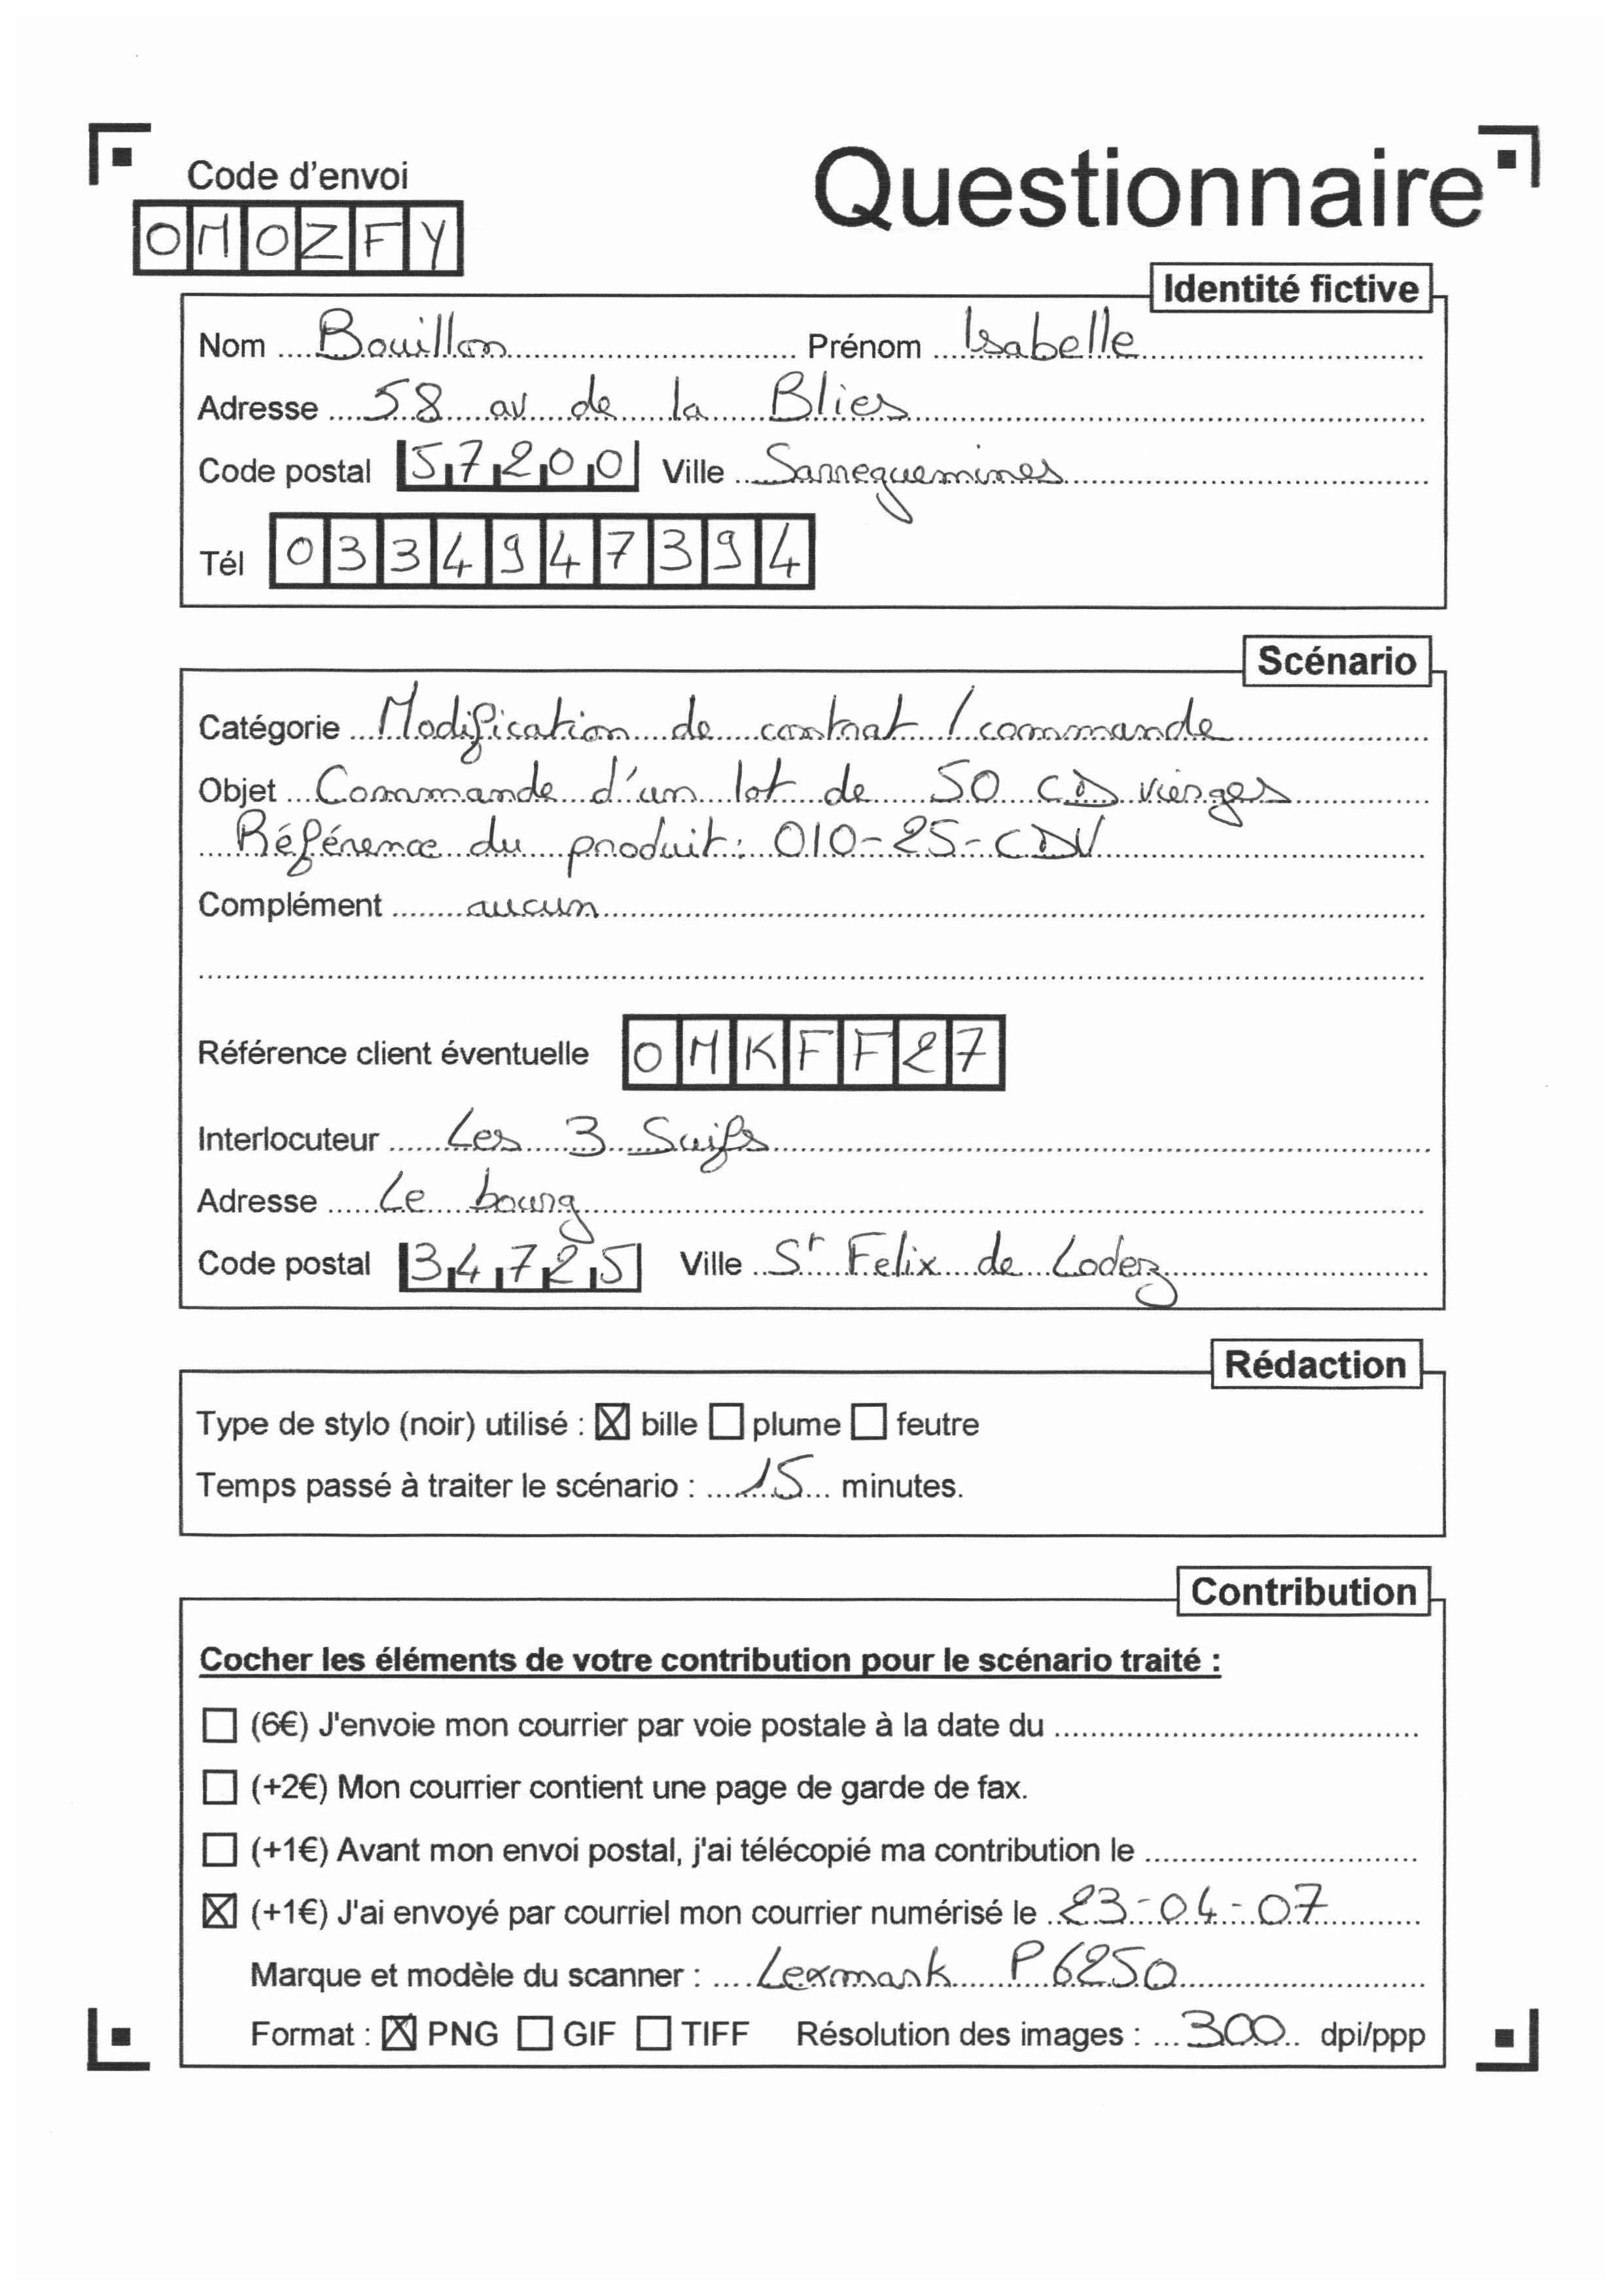 Code d'envoi
Questionnaire
OMOZFY
Identité fictive
Nom Bouillon Prénom Isabelle
Adresse 58 av de la Blies
Code postal 57200 Ville Sarreguemines
Tél 0334947394
Scénario
Catégorie Modification de contrat / commande
Objet Commande d'un lot de 50 CD vierges
Référence du produit : 010-25-CDV
Complément aucun
Référence client éventuelle OMKFF27
Interlocuteur Les 3 Suifs
Adresse Le bourg
Code postal 34725 Ville St Felix de Lodez
Rédaction
Type de stylo (noir) utilisé : ☒ bille ☐ plume ☐ feutre
Temps passé à traiter le scénario : 15 minutes.
Contribution
Cocher les éléments de votre contribution pour le scénario traité :
☐ (6€) J'envoie mon courrier par voie postale à la date du
☐ (+2€) Mon courrier contient une page de garde de fax.
☐ (+1€) Avant mon envoi postal, j'ai télécopié ma contribution le
☒ (+1€) J'ai envoyé par courriel mon courrier numérisé le 23-04-07
Marque et modèle du scanner : Lexmark P6250
Format : ☒ PNG ☐ GIF ☐ TIFF Résolution des images : 300 dpi/ppp